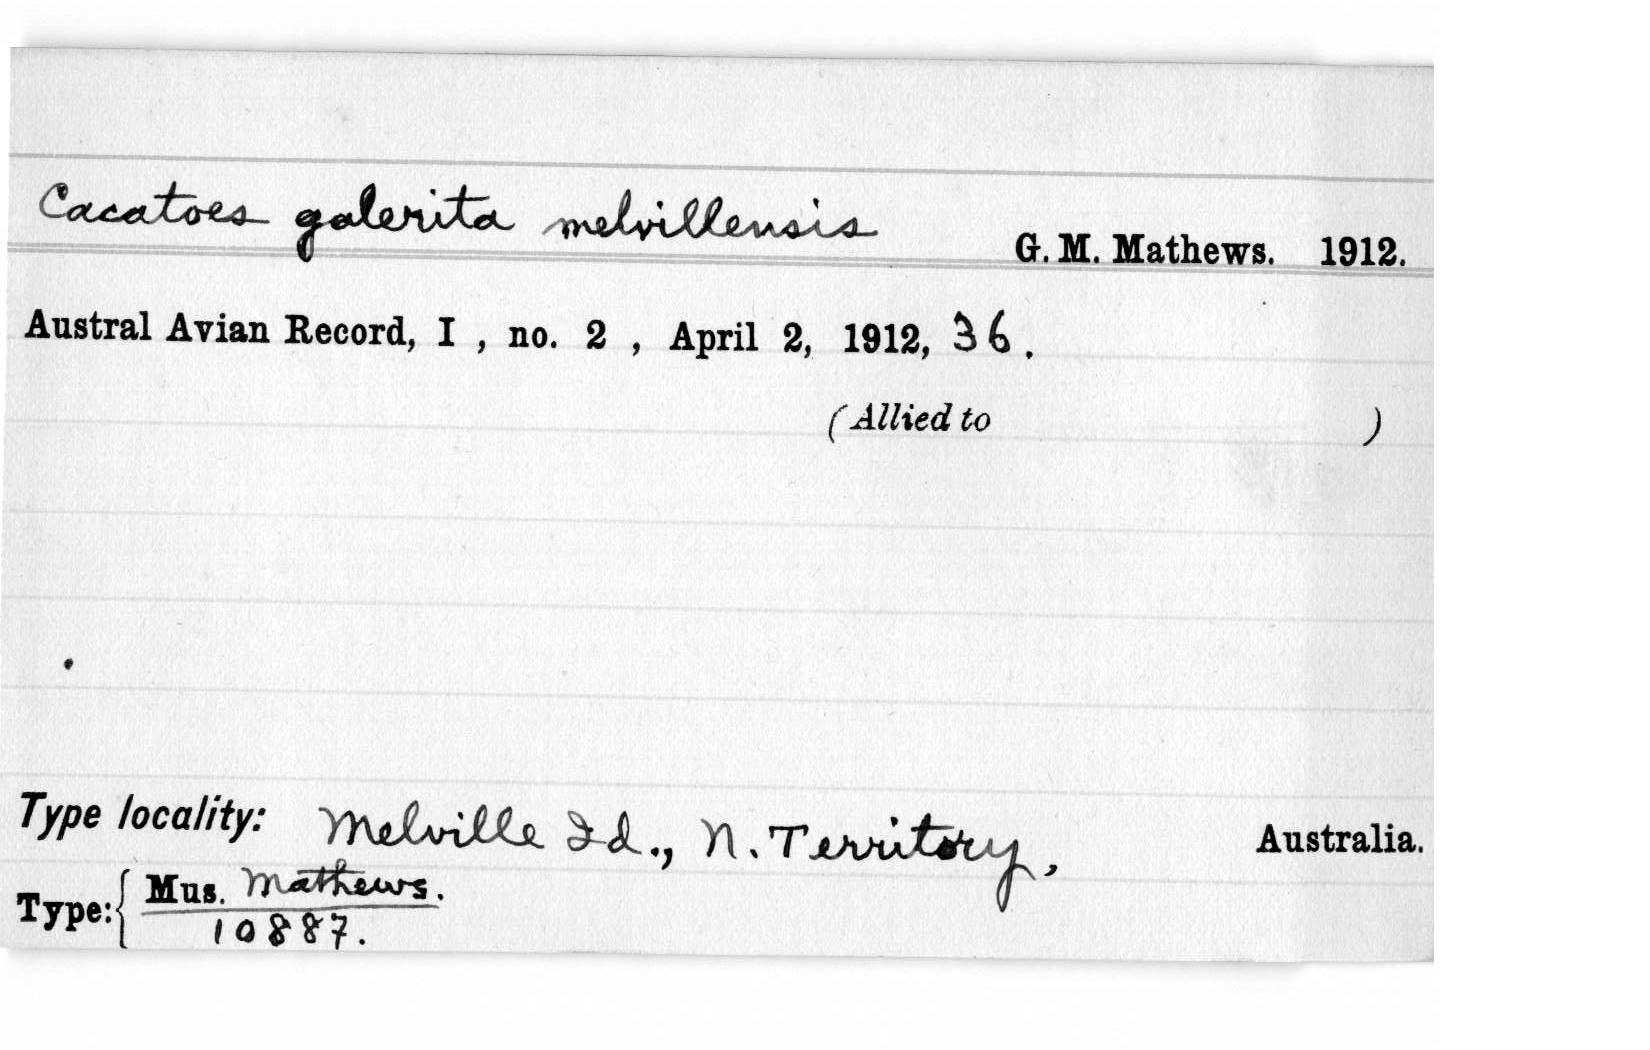 Cacatoes galerita melvillensis G. M. Mathews. 1912.
Austral Avian Record, I , no. 2 , April 2, 1912, 36.
(Allied to )
Type locality: Melville Id., N. Territory, Australia.
Type: { Mus. Mathews.
10887.